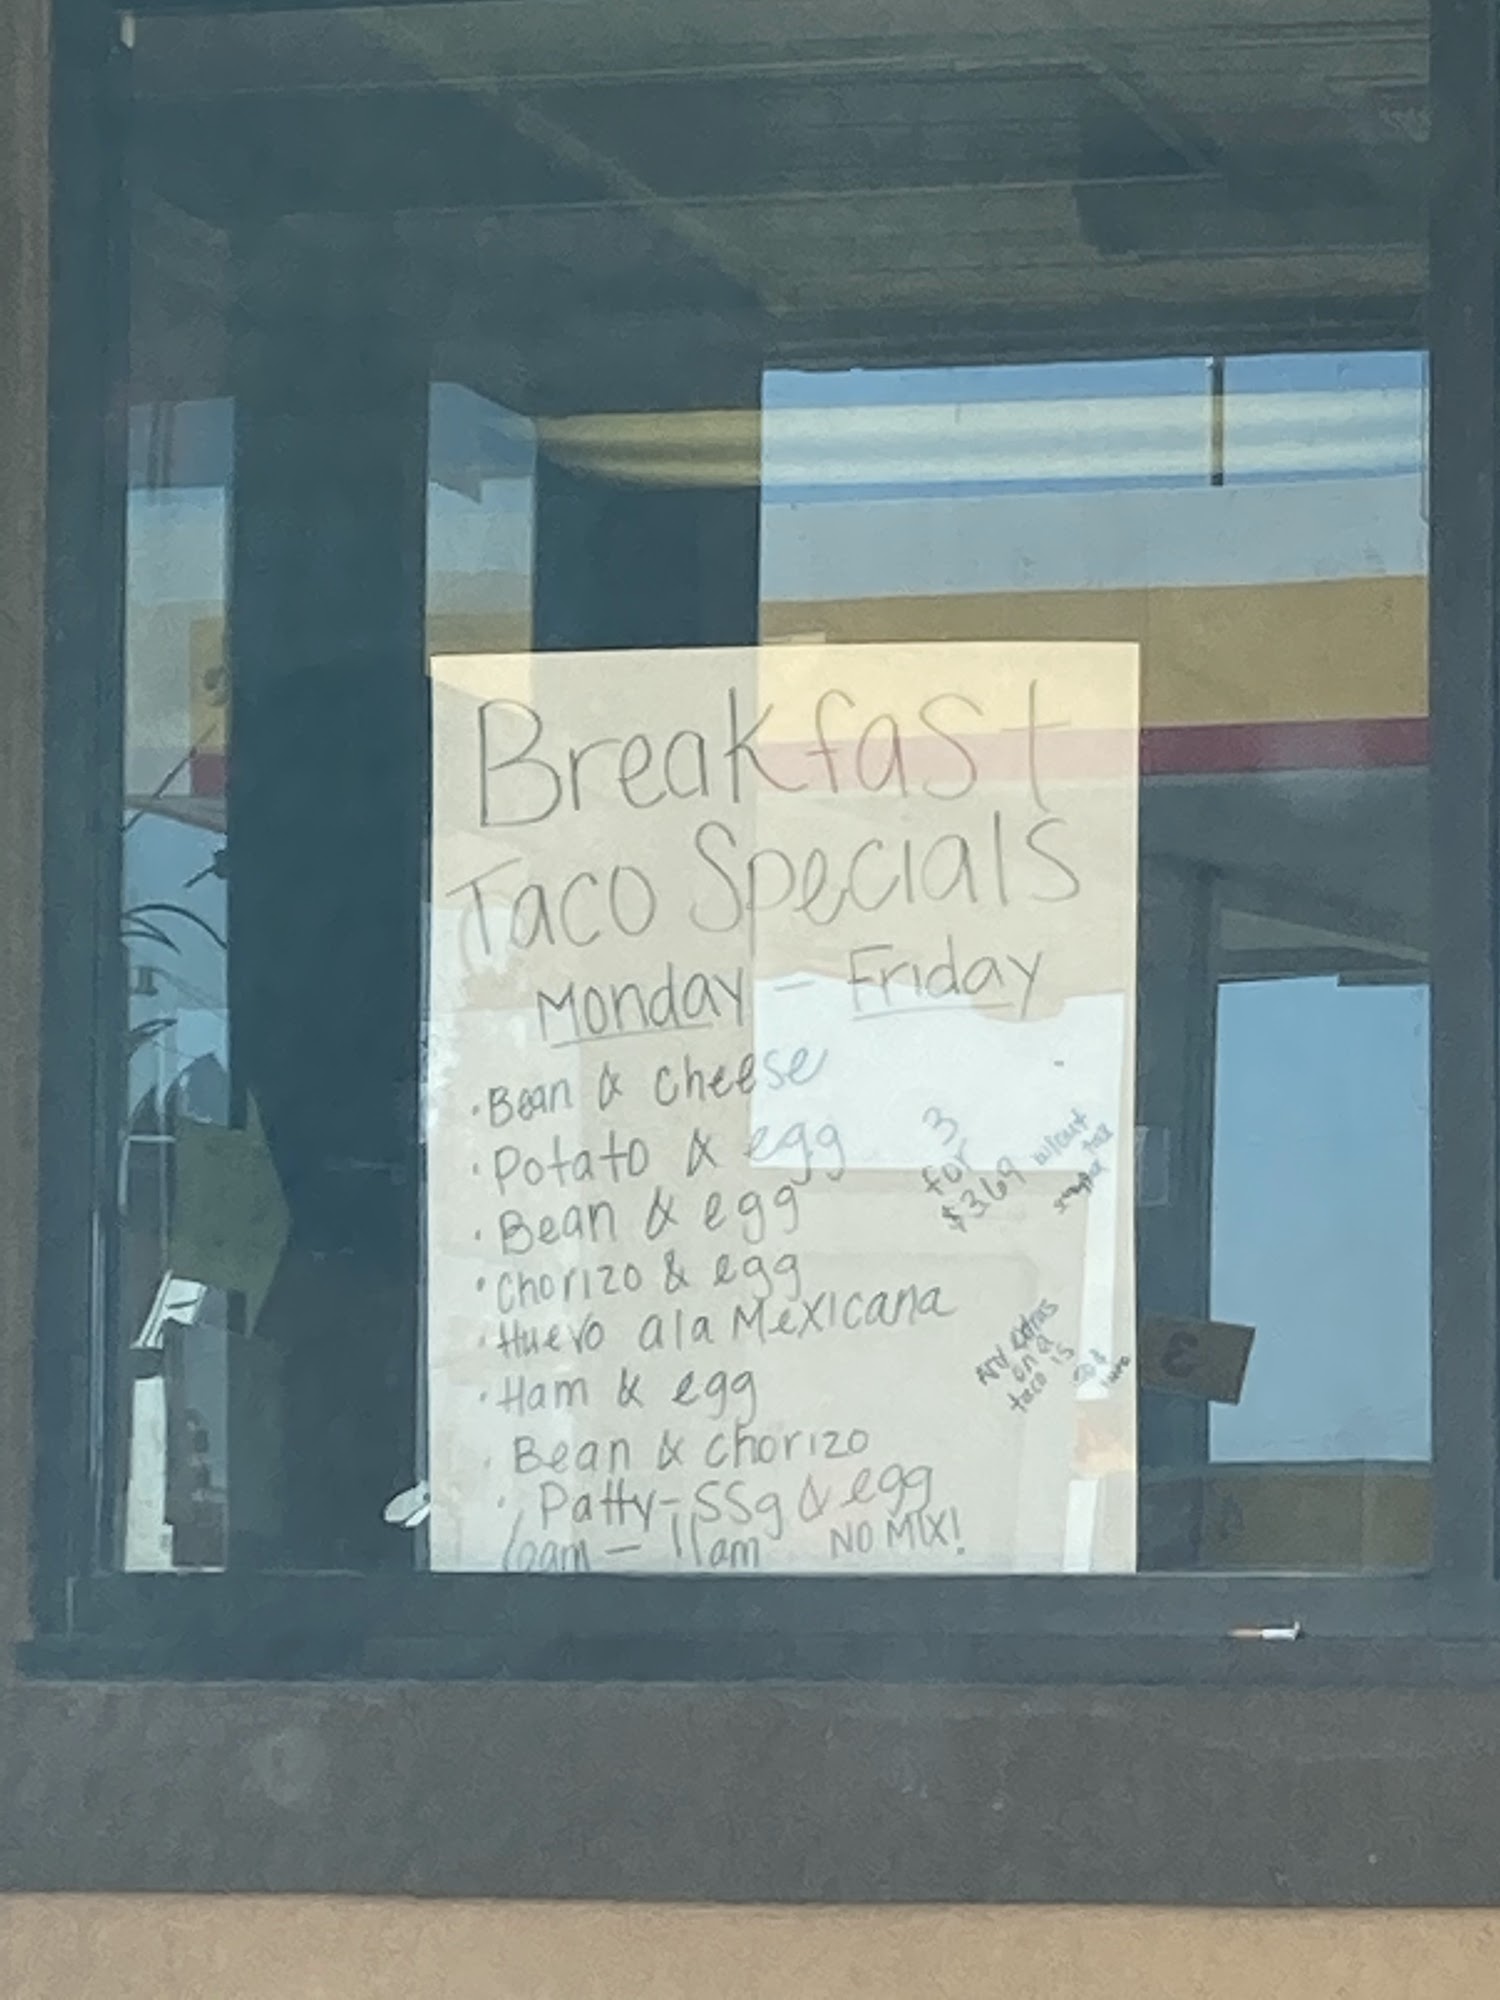 Breakfast
Taco Specials
Monday - Friday
• Bean & cheese
• Potato & egg
• Bean & egg
• Chorizo & egg
• Huevo ala Mexicana
• Ham & egg
• Bean & chorizo
• Patty-SSg & egg
6am - 11am NO MIX!
3
for
$3.69
w/out
tax
Any extras
on a
taco is
3